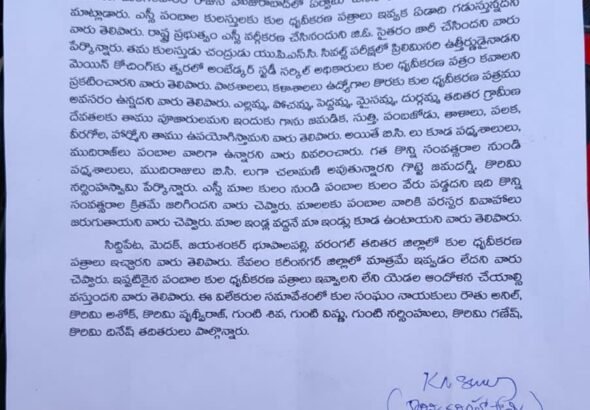 మాట్లాడారు. ఎస్సీ పంబాల కులస్తులకు కుల ధృవీకరణ పత్రాలు ఇవ్వక ఏడాది గడుస్తున్నదని
వారు తెలిపారు. రాష్ట్ర ప్రభుత్వం ఎస్సీ వర్గీకరణ చేసినందుని జి.ఓ. సైతరం జారీ చేసిందని వారు
పేర్కొన్నారు. తమ కులస్తుడు చంద్రుడు యు.పి.ఎస్.సి సివిల్ పరీక్షలో ప్రిలిమినరి ఉత్తీర్ణుడైనాడని
మెయిన్ కోచింగ్‌కు త్వరలో అంబేడ్కర్ స్టడీ సర్కిల్ అధికారులు కుల ధృవీకరణ పత్రం కవాలని
ప్రకటించారని వారు తెలిపారు. పాఠశాలలు, కళాశాలలు ఉద్యోగాల కొరకు కుల ధృవీకరణ పత్రము
అవసరం ఉన్నదని వారు తెలిపారు. ఎల్లమ్మ, పోచమ్మ, పెద్దమ్మ, మైసమ్మ, దుర్గమ్మ తదితర గ్రామీణ
దేవతలకు తాము పూజారులమని ఇందుకు గాను జమిడిక, సుత్తి, పంబజోడు, తాళాలు, పలక,
వీరగోల, హార్మోని తాము ఉపయోగిస్తామని వారు తెలిపారు. అయితే బి.సి. లు కూడ పద్మశాలులు,
ముదిరాజ్‌లు పంబాల వారిగా ఉన్నారని వారు వివరించారు. గత కొన్ని సంవత్సరాల నుండి
పద్మశాలులు, ముదిరాజులు బి.సి. లుగా చలామణి అవుతున్నారని గొట్టె జమదగ్ని, కొరిమి
నర్సింహస్వామి పేర్కొన్నారు. ఎస్సీ మాల కులం నుండి పంబాల కులం వేరు పడ్డదని ఇది కొన్ని
సంవత్సరాల క్రితమే జరిగిందని వారు చెప్పారు. మాలలకు పంబాల వారికి పరస్పర వివాహాలు
జరుగుతాయని వారు చెప్పారు. మాల ఇండ్ల వద్దనే మా ఇండ్లు కూడ ఉంటాయని వారు తెలిపారు.
సిద్దిపేట, మెదక్, జయశంకర్ భూపాలపల్లి, వరంగల్ తదితర జిల్లాలో కుల ధృవీకరణ
పత్రాలు ఇచ్చారని వారు తెలిపారు. కేవలం కరీంనగర్ జిల్లాలో మాత్రమే ఇవ్వడం లేదని వారు
చెప్పారు. ఇప్పటికైన పంబాల కుల ధృవీకరణ పత్రాలు ఇవ్వాలని లేని యెడల ఆందోళన చేయాల్సి
వస్తుందని వారు తెలిపారు. ఈ విలేకరుల సమావేశంలో కుల సంఘం నాయకులు రౌతు అనిల్,
కొరిమి అశోక్, కొరిమి పృథ్వీరాజ్, గుంటి శివ, గుంటి విష్ణు, గుంటి నర్సింహులు, కొరిమి గణేష్,
కొరిమి దినేష్ తదితరులు పాల్గొన్నారు.